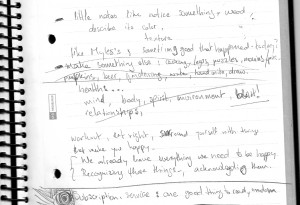 little notes like notice something + word
describe its color,
texture
like Myles's 3 something good that happened today?
notice something else : legos, puzzles,
puppies, beer, gardening, hand write, draw.
health...
mind, body, spirit, environment,
relationships,
workout, eat right, surround yourself with things
that make you happy.
We already have everything we need to be happy.
Recognizing those things, acknowledging them.
subscription service : one good thing to read,